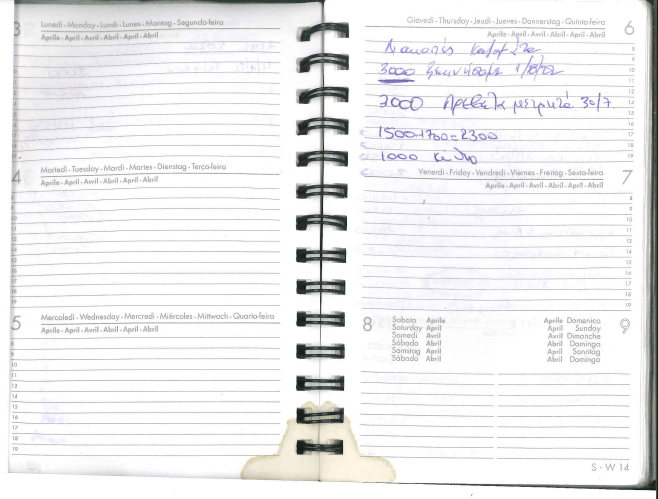 3
Lunedì - Monday - Lundi - Lunes - Montag - Segunda-feira
Aprile - April - Avril - Abril - April - Abril
4
Martedì - Tuesday - Mardi - Martes - Dienstag - Terça-feira
Aprile - April - Avril - Abril - April - Abril
5
Mercoledì - Wednesday - Mercredi - Miércoles - Mittwoch - Quarta-feira
Aprile - April - Avril - Abril - April - Abril
8
9
10
11
12
13
14
15
16
17
18
19
Giovedì - Thursday - Jeudi - Jueves - Donnerstag - Quinta-feira
6
Aprile - April - Avril - Abril - April - Abril
Διακοπές
3000 ξεκινήσαμε 1/8/02
2000 μετρητά 30/7
1500+700=2300
1000
Venerdì - Friday - Vendredi - Viernes - Freitag - Sexta-feira
7
Aprile - April - Avril - Abril - April - Abril
8
Sabato Aprile
Saturday April
Samedi Avril
Sábado Abril
Samstag April
Sábado Abril
Aprile Domenica
9
April Sunday
Avril Dimanche
Abril Domingo
April Sonntag
Abril Domingo
S - W 14